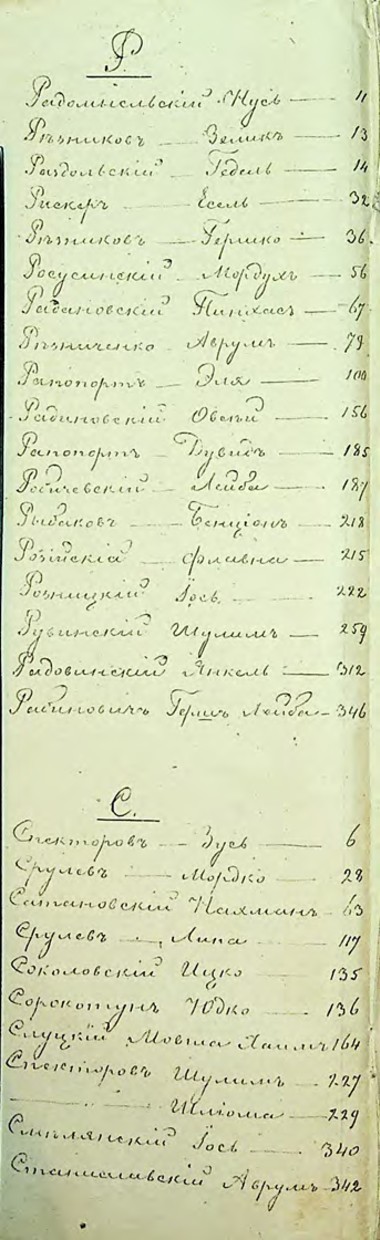 Р.
Радомысльскій Нусь — 11
Рѣзниковъ — Зеликъ — 13
Раздольскій — Гедель — 14
Рискеръ — Есель — 32
Рѣзниковъ — Гершко — 36.
Росусинскій — Мордухъ — 56
Рабановскій Пинхасъ — 67
Рѣзниченко — Аврумъ — 79
Рапопортъ — Эля — 100
Радиновскій Овсѣй — 156
Рапопортъ — Дувидъ — 185
Рабичевскій — Лейба — 187
Рыбаковъ — Бенціонъ — 218
— 215
Розницкій Іось — 222
Рувинскій Шулимъ — 259
Радовинскій Янкель — 312
Рабиновичъ Гершъ Лейба — 346
С.
Спекторовъ — Зусь — 6
Срулевъ — Мордко — 28
Сатановскій Нахманъ — 63
Срулевъ — 117
Соколовскій Ицко — 135
Сорокотунъ Юдко — 136
Слуцкій Мовша Хаимъ 164
Спекторовъ Шулимъ — 227
— Шлиома — 229
Смѣлянскій Іось — 340
Станиславскій Аврумъ — 342